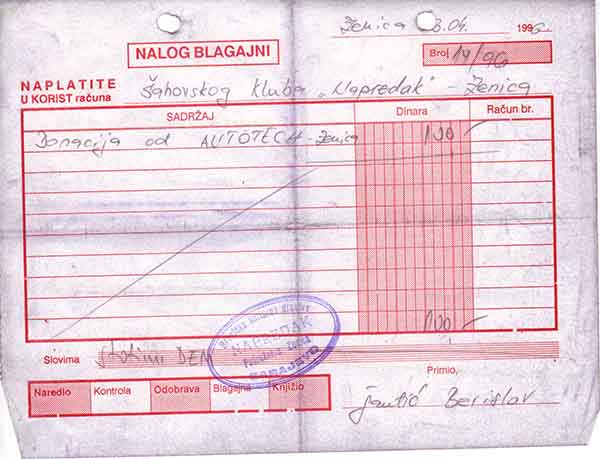 Zenica 23.04. 1996.
NALOG BLAGAJNI
Broj 14/96
NAPLATITE
U KORIST računa Šahovskog kluba „Napredak" - Zenica
SADRŽAJ Dinara Račun br.
Donacija od AUTOTECH - Zenica 100 -
100 -
NAPREDAK
SARAJEVO
Slovima Stotinu DEM
Primio,
Naredio Kontrola Odobrava Blagajna Knjižio
Berislav